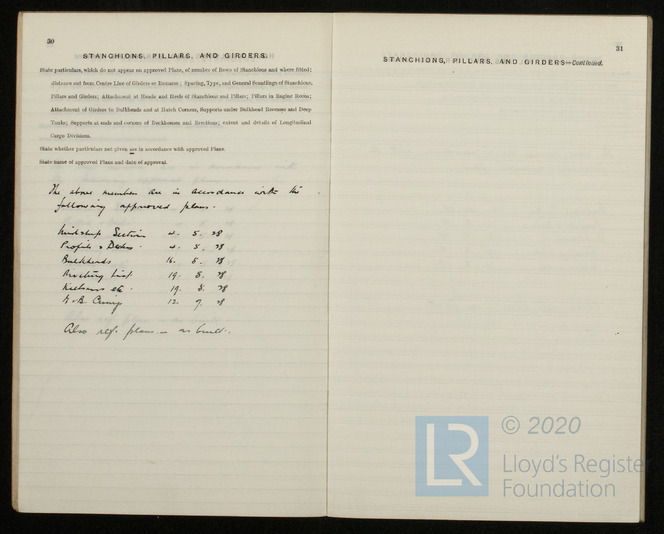 30
STANCHIONS, PILLARS, AND GIRDERS.
State particulars, which do not appear on approved Plans, of number of Rows of Stanchions and where fitted;
distance out from Centre Line of Girders or Runners; Spacing, Type, and General Scantlings of Stanchions,
Pillars and Girders; Attachment at Heads and Heels of Stanchions and Pillars; Pillars in Engine Room;
Attachment of Girders to Bulkheads and at Hatch Corners, Supports under Bulkhead Recesses and Deep
Tanks; Supports at ends and corners of Deckhouses and Erections; extent and details of Longitudinal
Cargo Divisions.
State whether particulars not given are in accordance with approved Plans.
State name of approved Plans and date of approval.
The above members are in accordance with the
following approved plans.
Midship Section 4. 5. 28
Profile & Decks. 4. 5. 28
Bulkheads 16. 5. 28
Riveting List 19. 5. 28
etc. 19. 5. 28
12. 7. 28
Also ref. plans - as built.
31
STANCHIONS, PILLARS, AND GIRDERS—Continued.
LR
© 2020
Lloyd's Register
Foundation